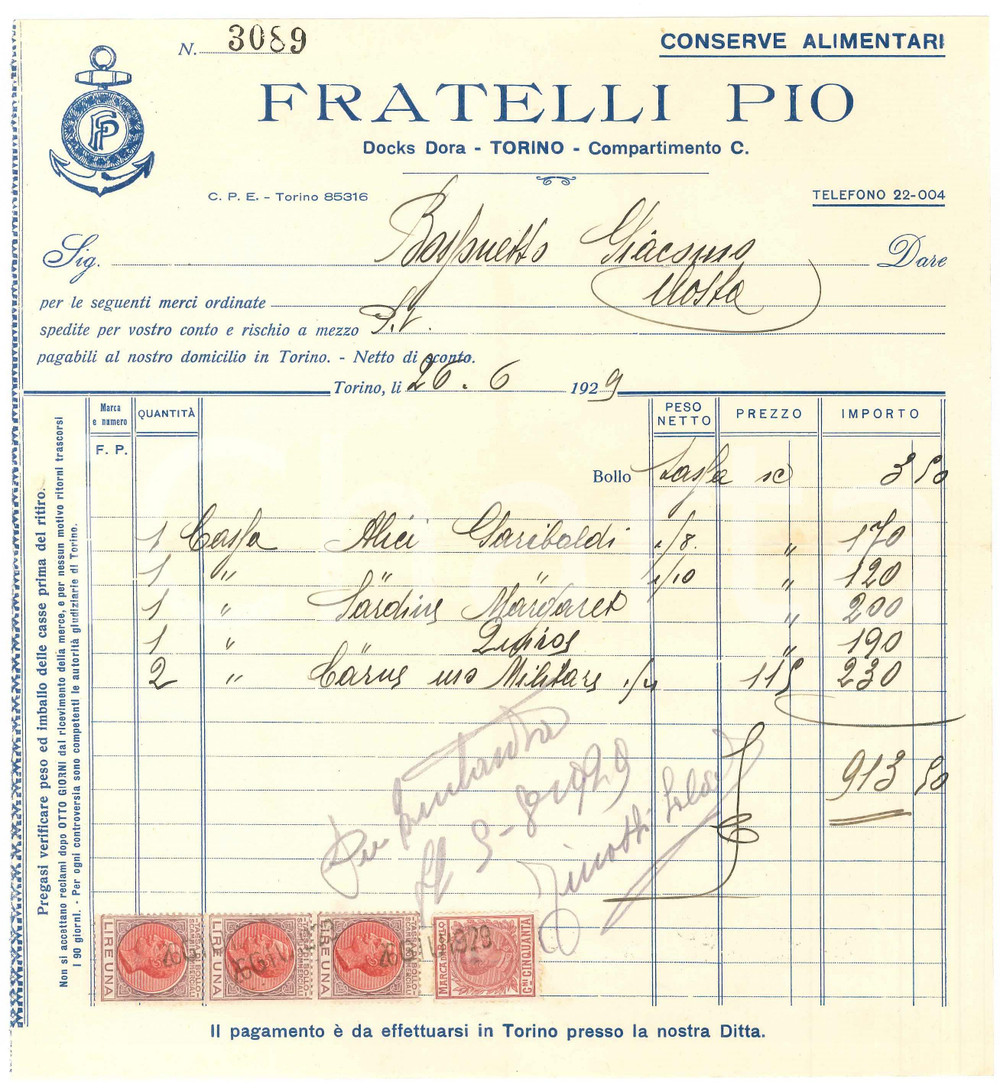 N. 3089
CONSERVE ALIMENTARI
FRATELLI PIO
Docks Dora - TORINO - Compartimento C.
FP
C. P. E. - Torino 85316
TELEFONO 22-004
Sig. Giacomo Dare
Aosta
per le seguenti merci ordinate
spedite per vostro conto e rischio a mezzo
pagabili al nostro domicilio in Torino. - Netto di sconto.
Torino, li 26.6 1929
Marca e numero
QUANTITÀ
PESO NETTO
PREZZO
IMPORTO
F. P.
Bollo Tassa sc 3 50
1 Cassa Alici Garibaldi 1/8. " 170
1 " " " 1/10 " 120
1 " Sardine Margaret " 200
1 " " 190
2 " Carne uso Militare 1/4 115 230
913 50
Per
1929
Pregasi verificare peso ed imballo delle casse prima del ritiro.
Non si accettano reclami dopo OTTO GIORNI dal ricevimento della merce, e per nessun motivo ritorni trascorsi
i 90 giorni. - Per ogni controversia sono competenti le autorità giudiziarie di Torino.
LIRE UNA
LIRE UNA
LIRE UNA
MARCA DA BOLLO
Cmi CINQUANTA
26 GIU. 1929
Il pagamento è da effettuarsi in Torino presso la nostra Ditta.